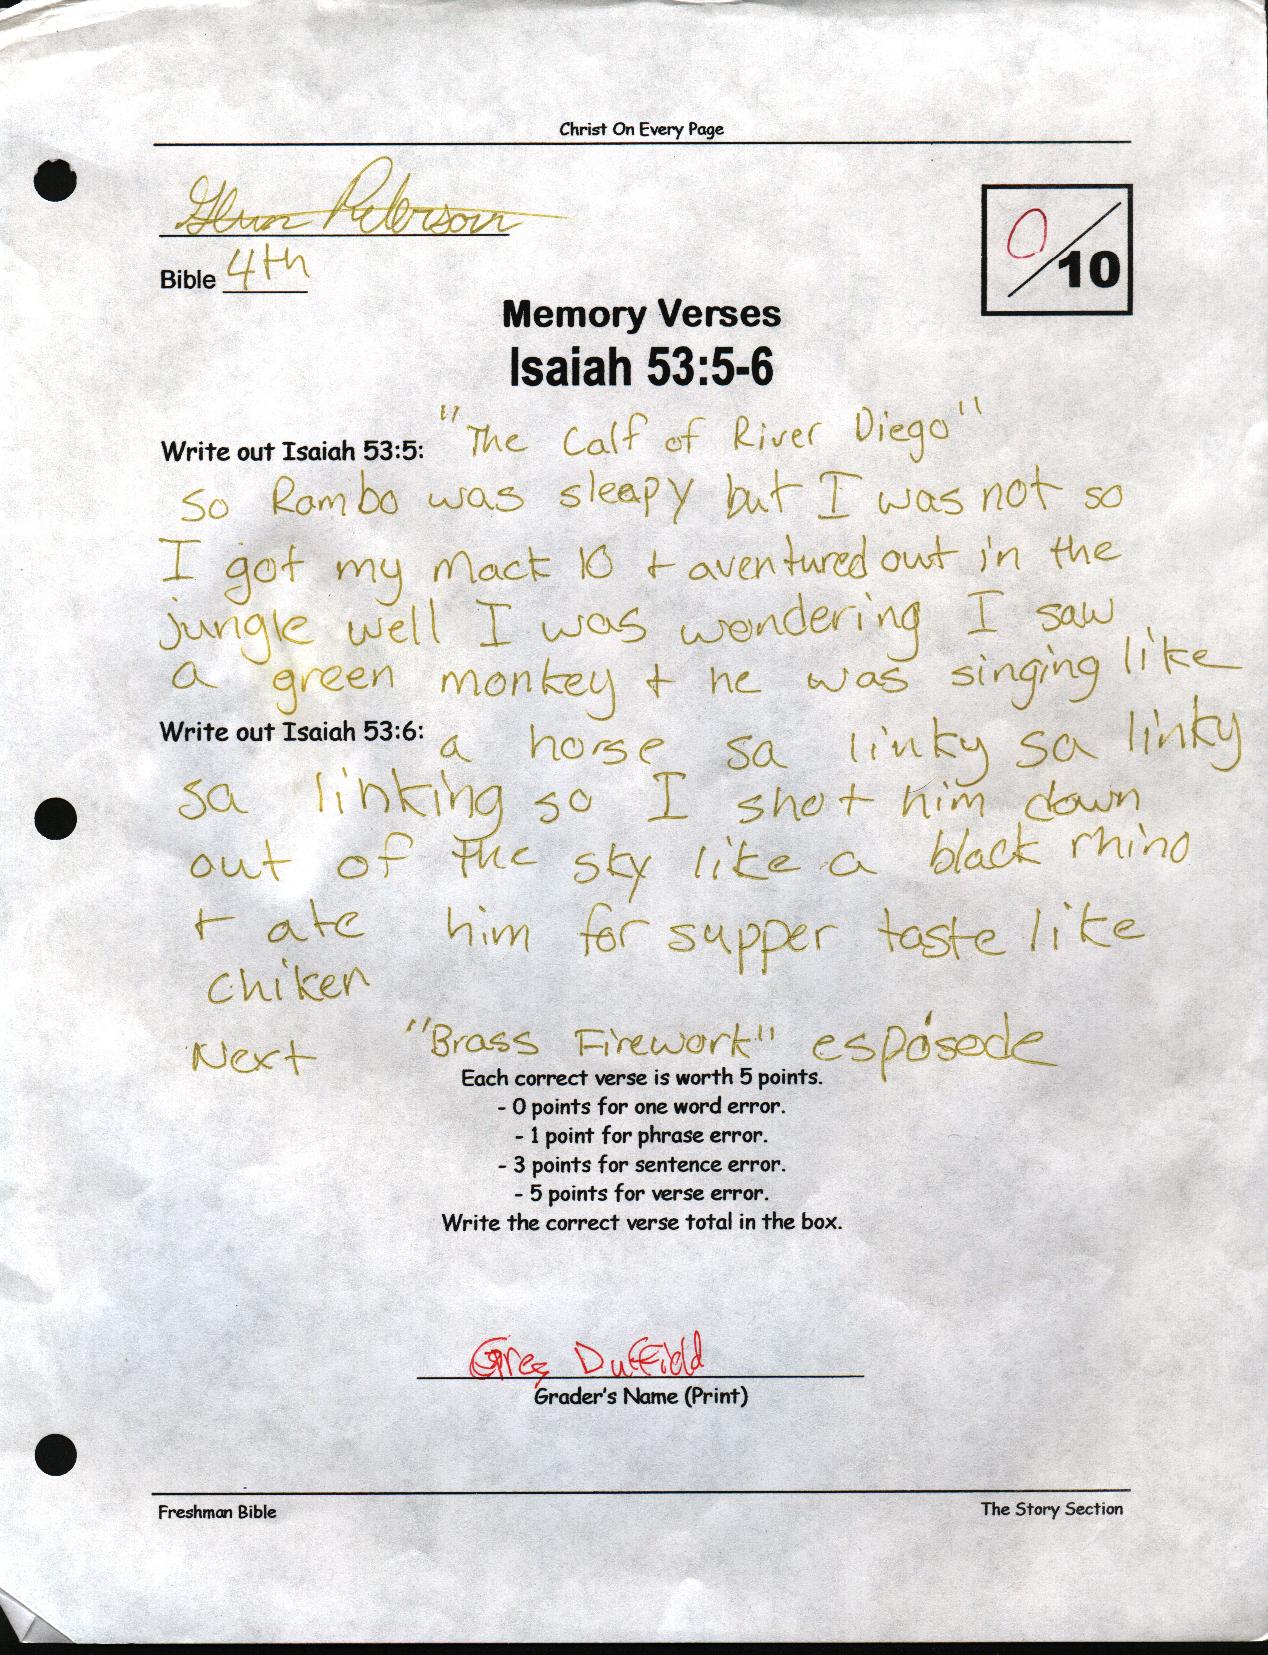 Christ On Every Page
Glenn Peterson
Bible 4th
0/10
Memory Verses
Isaiah 53:5-6
Write out Isaiah 53:5: "The Calf of River Diego"
So Rambo was sleapy but I was not so
I got my Mack 10 + aventured out in the
jungle well I was wondering I saw
a green monkey + he was singing like
Write out Isaiah 53:6: a horse sa linky sa linky
sa linking so I shot him down
out of the sky like a black rhino
+ ate him for supper taste like
chiken
Next "Brass Firework" esposode
Each correct verse is worth 5 points.
- 0 points for one word error.
- 1 point for phrase error.
- 3 points for sentence error.
- 5 points for verse error.
Write the correct verse total in the box.
Greg Duffield
Grader's Name (Print)
Freshman Bible The Story Section